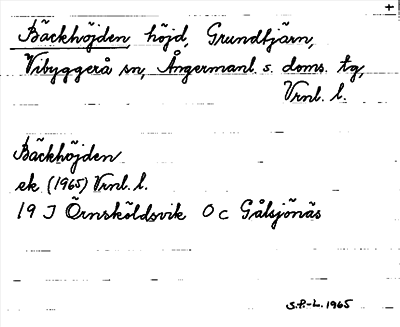 +
Bäckhöjden, höjd, Grundtjärn,
Vibyggerå sn, Ångermanl. s. doms. tg,
Vrnl. l.
Bäckhöjden
ek. (1965) Vrnl. l.
19 J Örnsköldsvik 0 c Gålsjönäs
S.P.-L. 1965